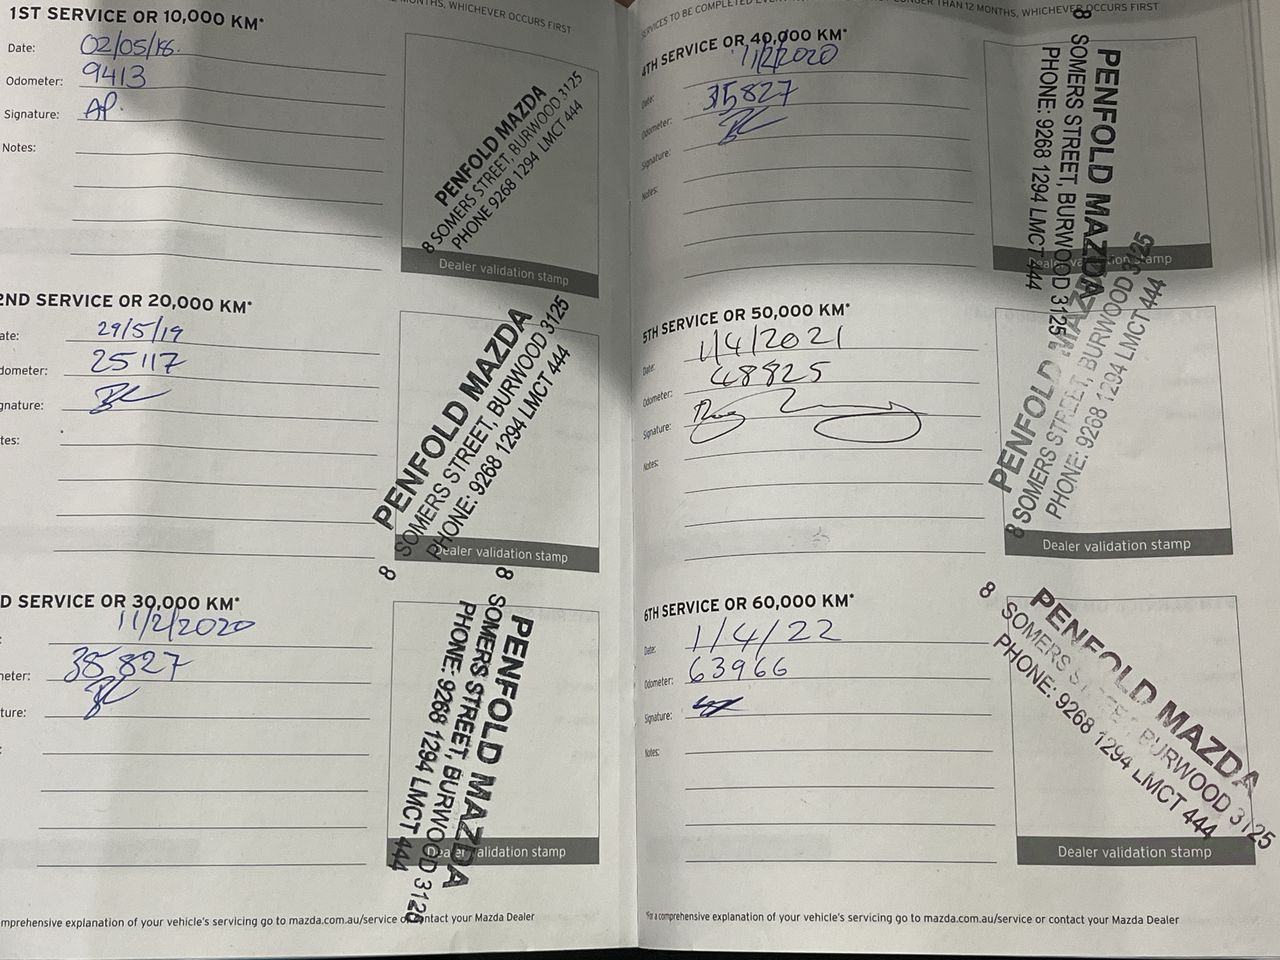 1ST SERVICE OR 10,000 KM*
Date: 02/05/18.
Odometer: 9413
Signature: AP.
Notes:
PENFOLD MAZDA
8 SOMERS STREET, BURWOOD 3125
PHONE 9268 1294 LMCT 444
Dealer validation stamp
2ND SERVICE OR 20,000 KM*
ate: 29/5/19
dometer: 25117
gnature:
tes:
PENFOLD MAZDA
8 SOMERS STREET, BURWOOD 3125
PHONE: 9268 1294 LMCT 444
Dealer validation stamp
D SERVICE OR 30,000 KM*
: 11/2/2020
neter: 35827
ture:
:
PENFOLD MAZDA
8 SOMERS STREET, BURWOOD 3125
PHONE: 9268 1294 LMCT 444
Dealer validation stamp
mprehensive explanation of your vehicle's servicing go to mazda.com.au/service or contact your Mazda Dealer
MONTHS, WHICHEVER OCCURS FIRST
SERVICES TO BE COMPLETED THAN 12 MONTHS, WHICHEVER OCCURS FIRST
4TH SERVICE OR 40,000 KM*
11/2/2020
Date: 35827
Odometer:
Signature:
Notes:
PENFOLD MAZDA
8 SOMERS STREET, BURWOOD 3125
PHONE: 9268 1294 LMCT 444
Dealer validation stamp
5TH SERVICE OR 50,000 KM*
1/4/2021
Date: 48825
Odometer:
Signature:
Notes:
PENFOLD MAZDA
8 SOMERS STREET, BURWOOD 3125
PHONE: 9268 1294 LMCT 444
Dealer validation stamp
6TH SERVICE OR 60,000 KM*
Date: 1/4/22
Odometer: 63966
Signature:
Notes:
PENFOLD MAZDA
8 SOMERS STREET, BURWOOD 3125
PHONE: 9268 1294 LMCT 444
Dealer validation stamp
*For a comprehensive explanation of your vehicle's servicing go to mazda.com.au/service or contact your Mazda Dealer